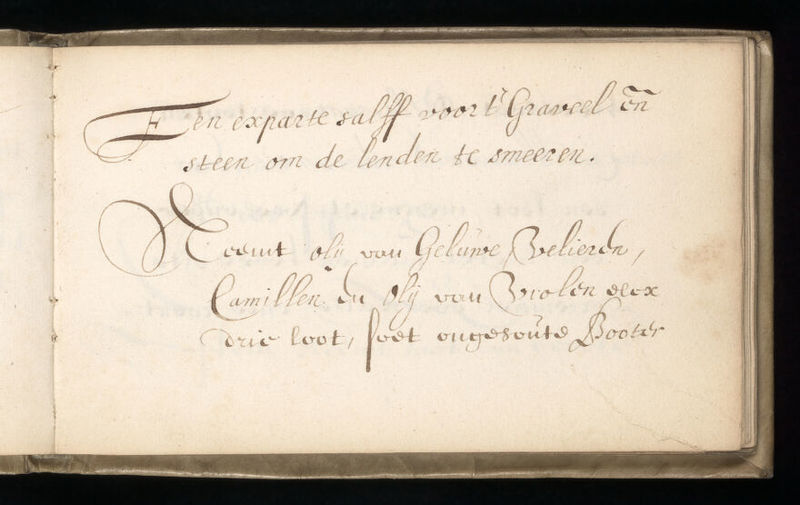 Een experte salff voort' Graveel en̄
steen om de lenden te smeeren.
Neemt olij van Geluwe Violieren,
Camillen en olij van Violen elcx
drie loot, soet ongesoute Booter